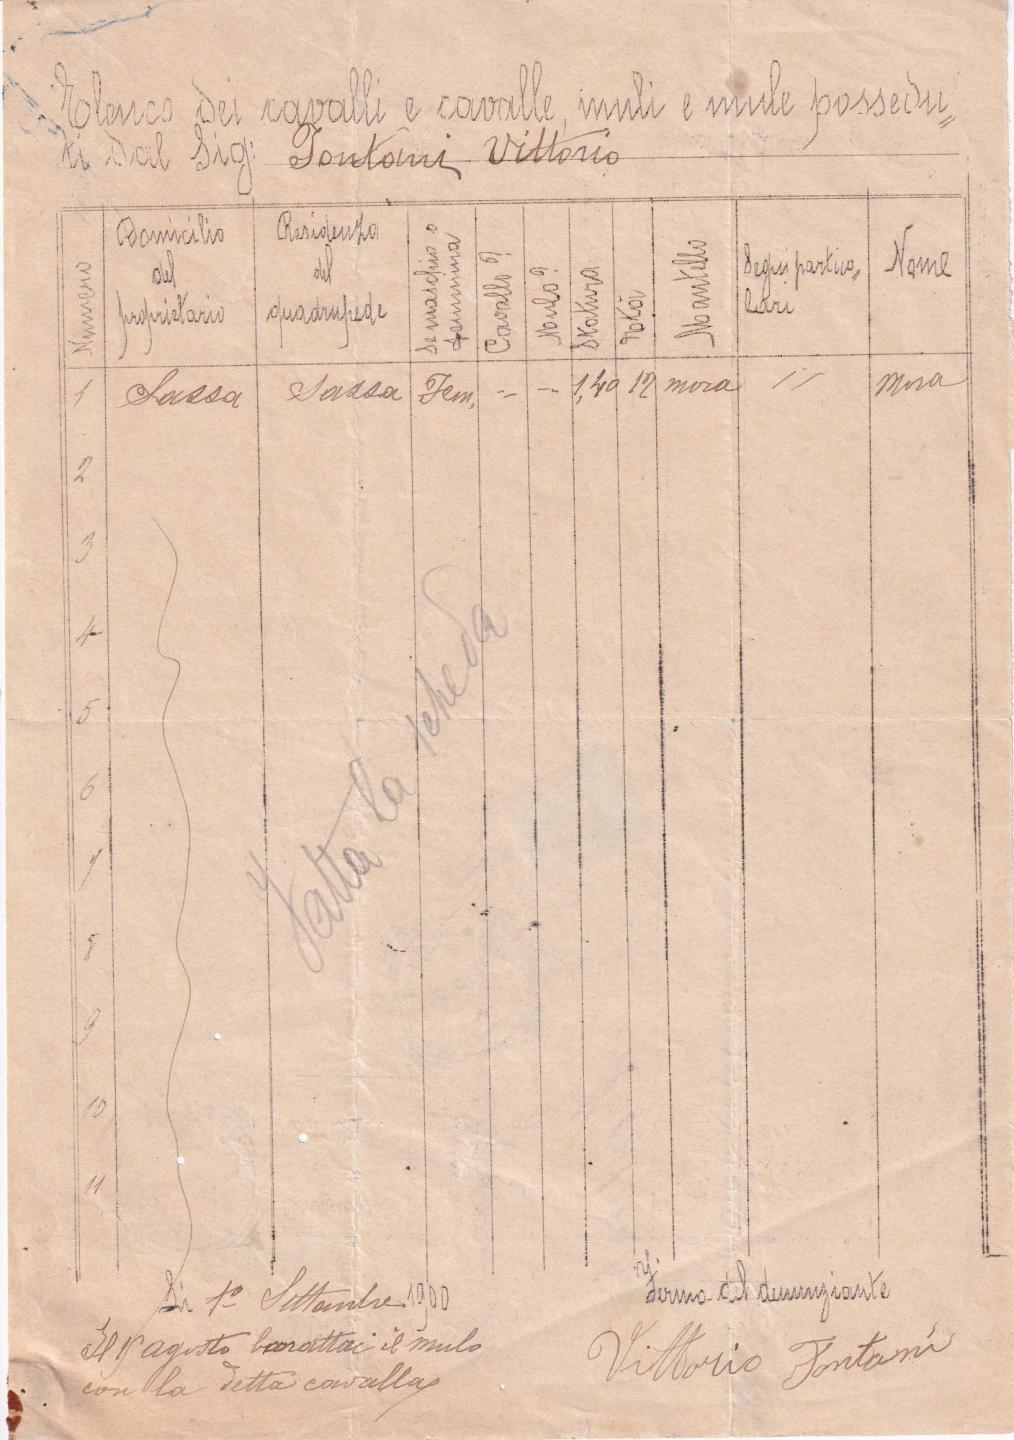 Elenco dei cavalli e cavalle, muli e mule possedu„
ti dal Sig: Fontani Vittorio
Numero
Domicilio
del
proprietario
Residenza
del
quadrupede
Se maschio o
femmina
Cavallo?
Mulo?
Statura
Età
Mantello
Segni partico„
lari
Nome
1 Sassa Sassa Fem, -- -- 1,40 12 mora // Mora
2
3
4
5
6
7
8
9
10
11
Fatta la scheda
Lì 1º Settembre 1900
Firma del denunziante
agosto barattai il mulo
con la detta cavalla
Vittorio Fontani